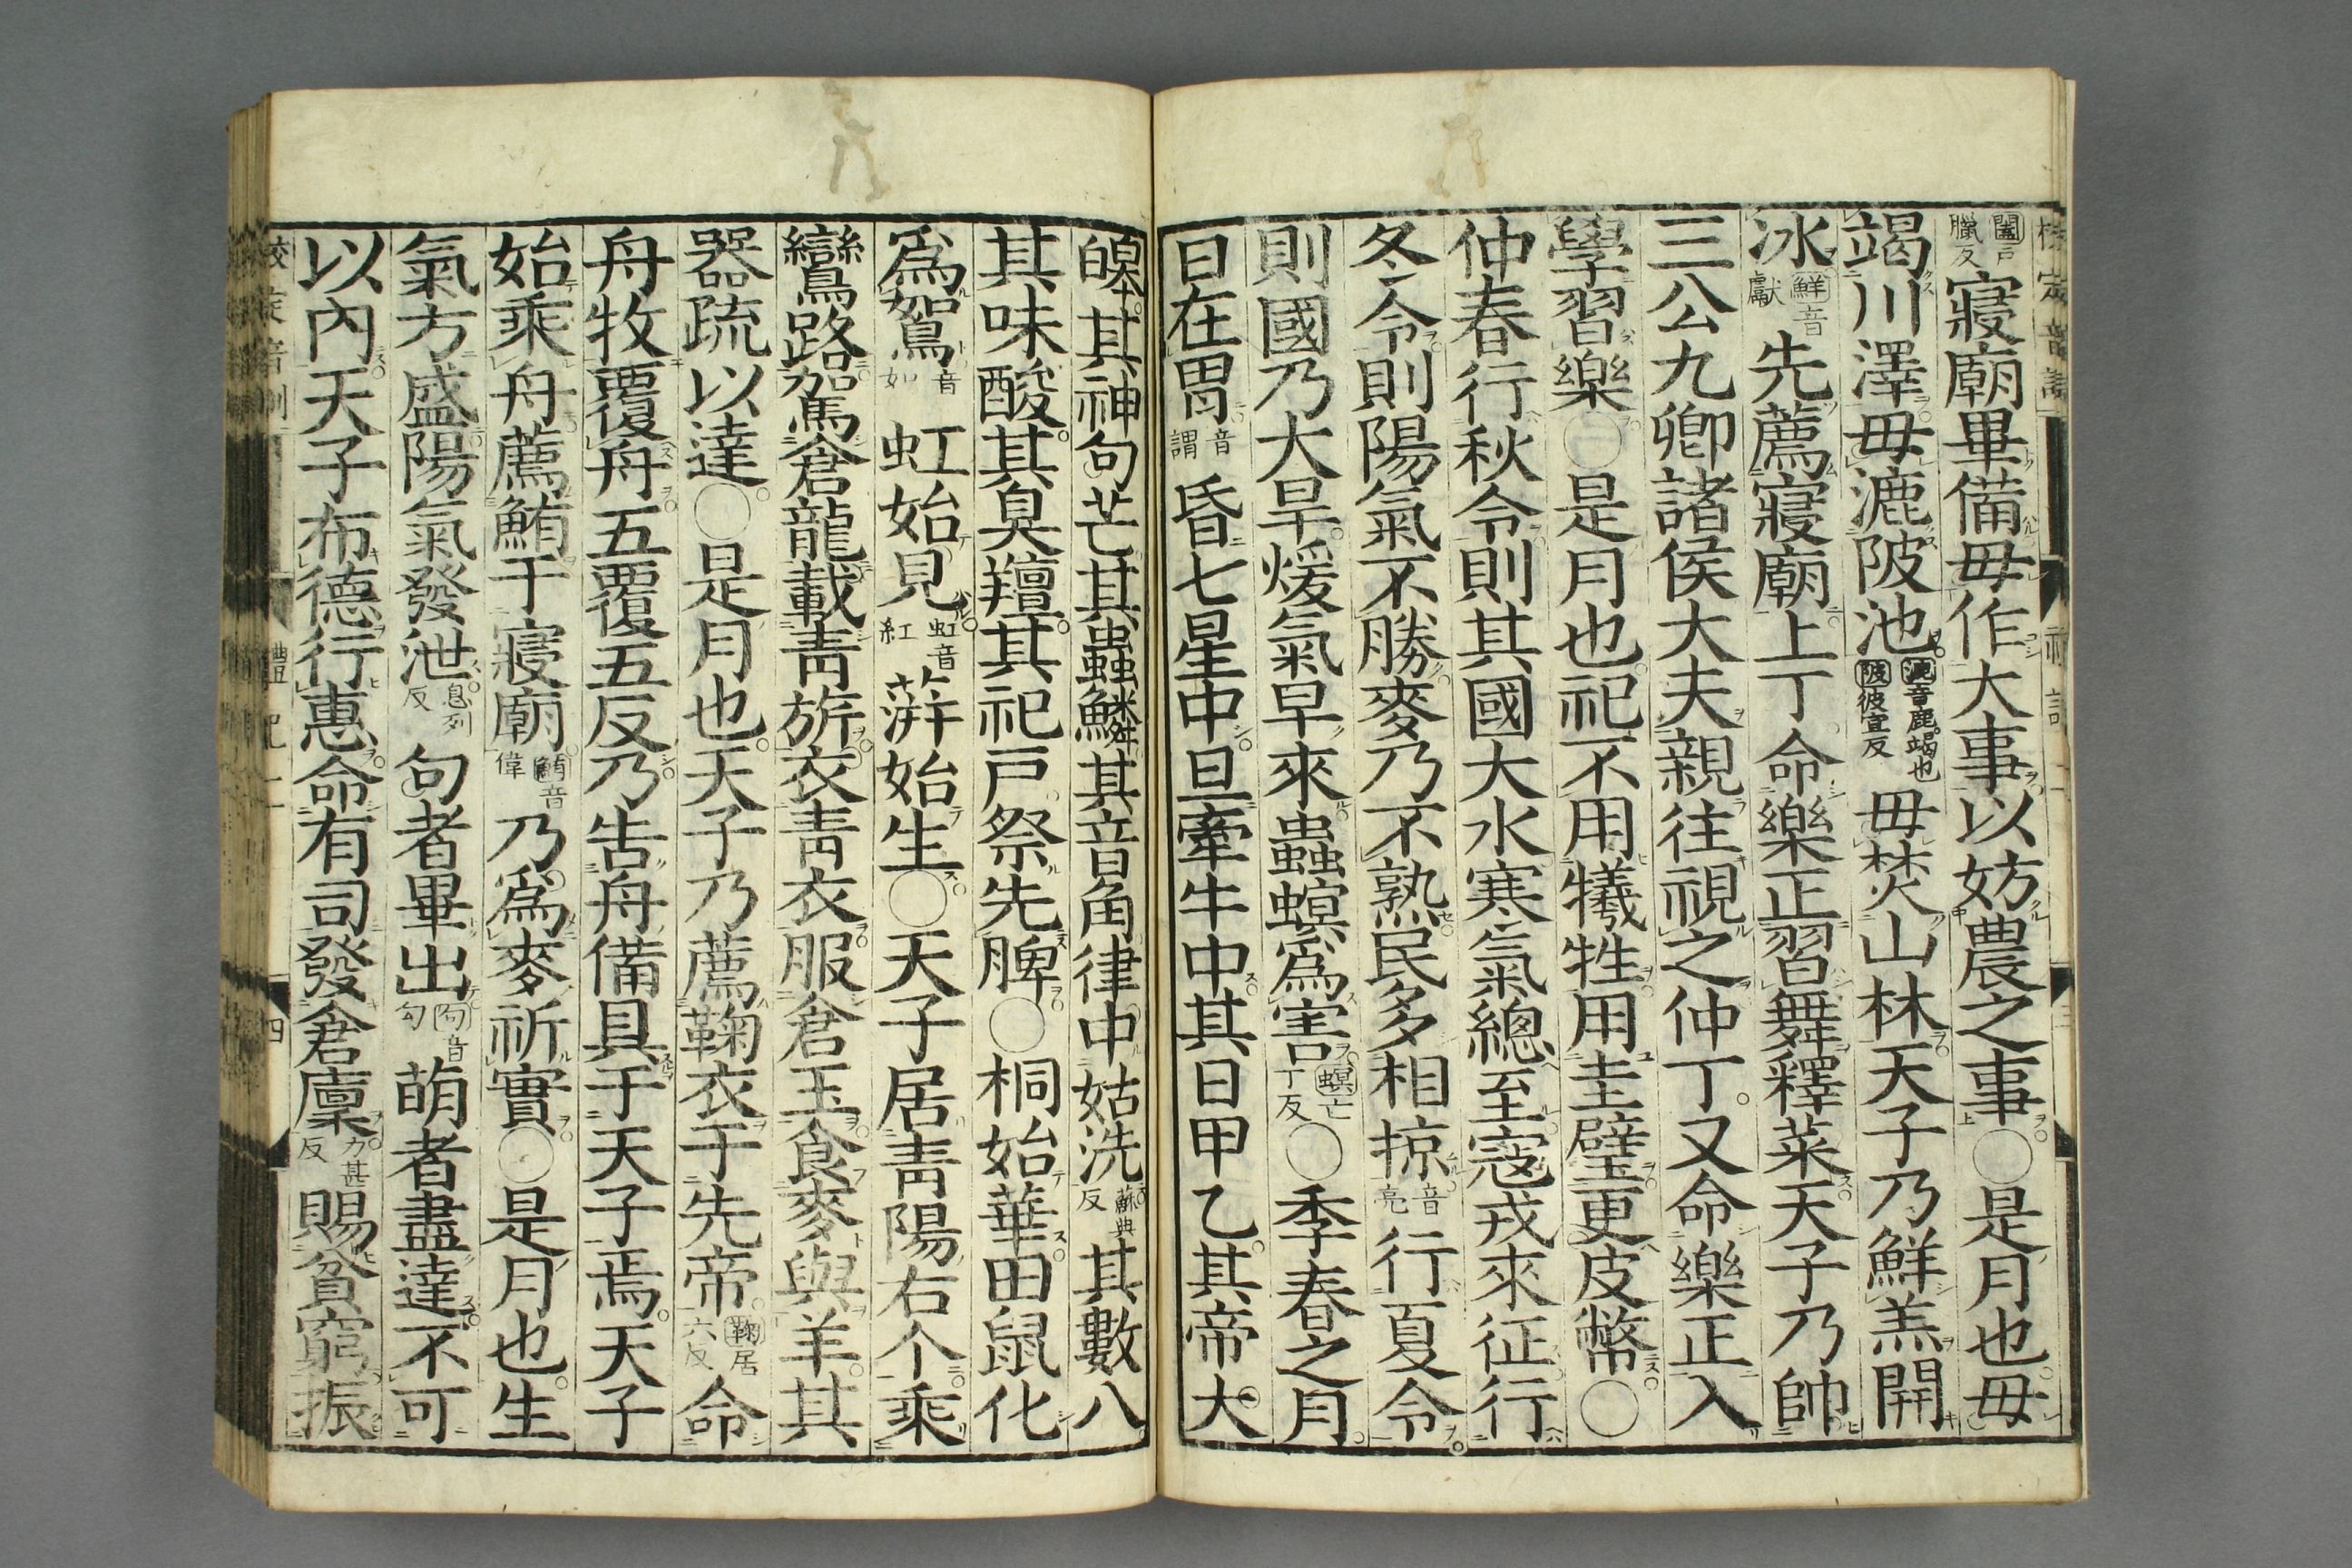 闔戶臘反寢廟畢備毋作大事以妨農之事○是月也毋
竭川澤毋漉陂池漉音鹿竭也陂彼宜反毋焚山林天子乃鮮羔開
冰鮮音獻先薦寢廟上丁命樂正習舞釋菜天子乃帥
三公九卿諸侯大夫親往視之仲丁又命樂正入
學習樂○是月也祀不用犧牲用圭璧更皮幣○
仲春行秋令則其國大水寒氣總至寇戎來征行
冬令則陽氣不勝麥乃不熟民多相掠音亮行夏令
則國乃大旱煖氣早來蟲螟爲害螟亡丁反○季春之月
日在胃音謂昏七星中旦牽牛中其日甲乙其帝大
皞其神句芒其蟲鱗其音角律中姑洗蘇典反其數八
其味酸其臭羶其祀戸祭先脾○桐始華田鼠化
爲鴽音如虹始見虹音紅蓱始生○天子居靑陽右个乘
鸞路駕倉龍載靑旂衣靑衣服倉玉食麥與羊其
器疏以達○是月也天子乃薦鞠衣于先帝鞠居六反命
舟牧覆舟五覆五反乃告舟備具于天子焉天子
始乘舟薦鮪于寢廟鮪音偉乃爲麥祈實○是月也生
氣方盛陽氣發泄息列反句者畢出句音勾萌者盡達不可
以內天子布德行惠命有司發倉廩力甚反賜貧窮振
禮記二
四